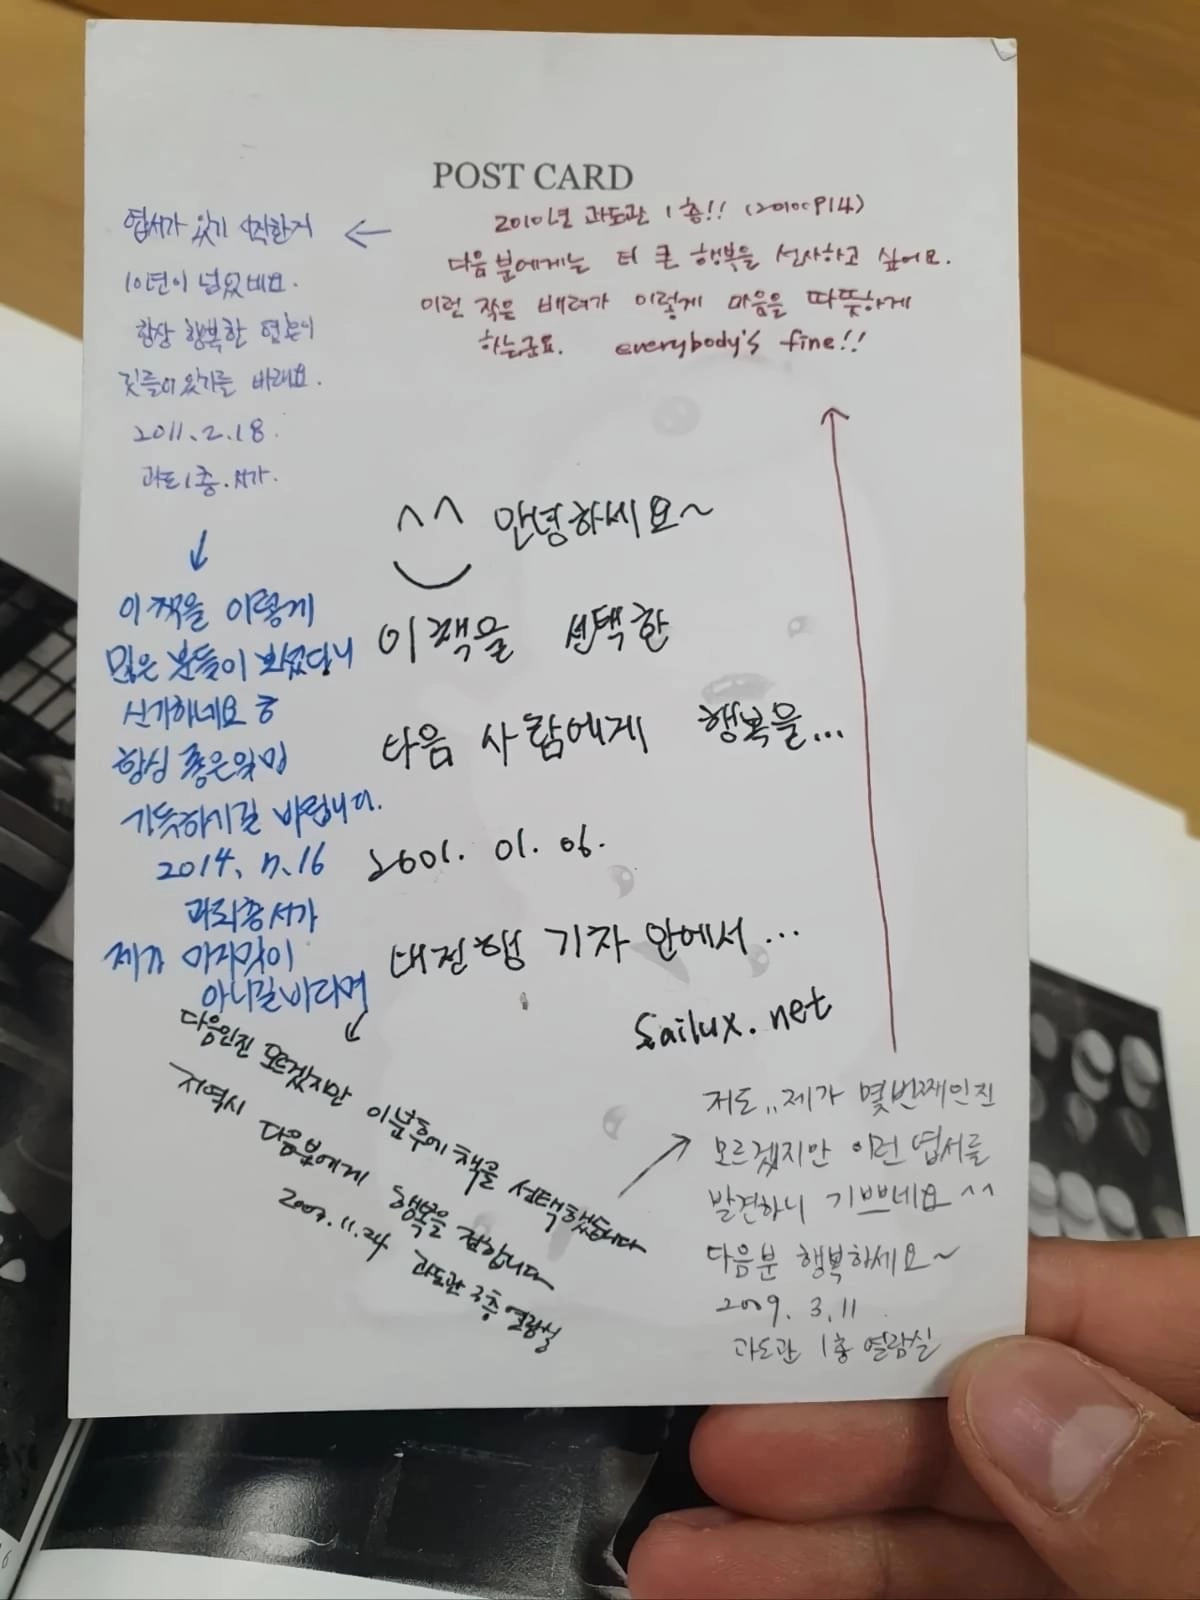 POST CARD
^^ 안녕하세요~
이 책을 선택한
다음 사람에게 행복을...
2001. 01. 06.
대전행 기차 안에서...
sailux.net
다음인진 모르겠지만 이분후에 책을 선택했습니다
저역시 다음분에게 행복을 전합니다
2007.11.24 과도관 3층 열람실
저도.. 제가 몇번째인진
모르겠지만 이런 엽서를
발견하니 기쁘네요 ^^
다음분 행복하세요~
2009. 3. 11
과도관 1층 열람실
2010년 과도관 1층!! (20100914)
다음 분에게는 더 큰 행복을 선사하고 싶어요.
이런 작은 배려가 이렇게 마음을 따뜻하게
하는군요. everybody's fine!!
엽서가 있기 시작한거
10년이 넘었네요.
항상 행복한
있기를 바래요.
2011. 2. 18.
과도 1층. 서가.
이 책을 이렇게
많은 분들이 보셨다니
신기하네요 ㅎ
항상 좋은일만
가득하시길 바랍니다.
2014. 7. 16
서가
제가 마지막이
아니길 바라며